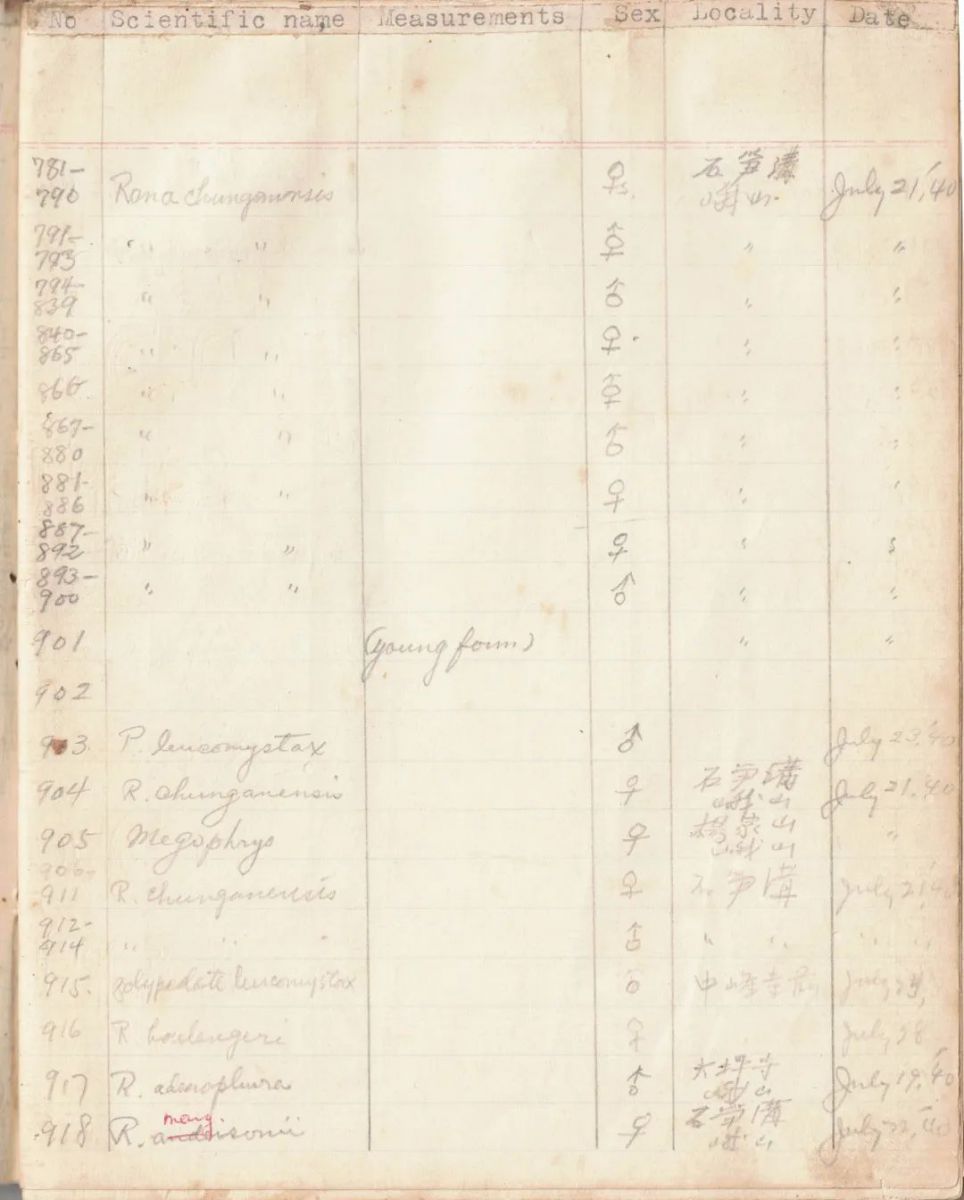 No Scientific name Measurements Sex Locality Date
781- 石笋溝
790 Rana chunganensis ♀s. 峨山. July 21,'40
791-
793 " " ⚦ " "
794-
839 " " ♂ " "
840-
865 " " ♀ " "
866. " " ⚦ " "
867-
880 " " ♂ " "
881-
886 " " ♀ " "
887-
892 " " ♀ " "
893-
900 " " ♂ " "
901 (young form) " "
902
903 P. leucomystax ♂ July 23,'40
904 R. chunganensis ♀ 石笋溝 July 21,'40
峨山
905 Megophrys ♀ 山 "
峨山
906-
911 R. chunganensis ♀ 石笋溝 July 21,'40
912-
914 " " " ♂ " " " "
915. polypedate leucomystax ♂ 中峰寺前 July
916 R. boulengeri ♀ July 28
917 R. adenopleura ♂ 大坪寺 July 19,'40
峨山
marg.
918 R. andersonii ♀ 石笋溝 July 22,'40
峨山